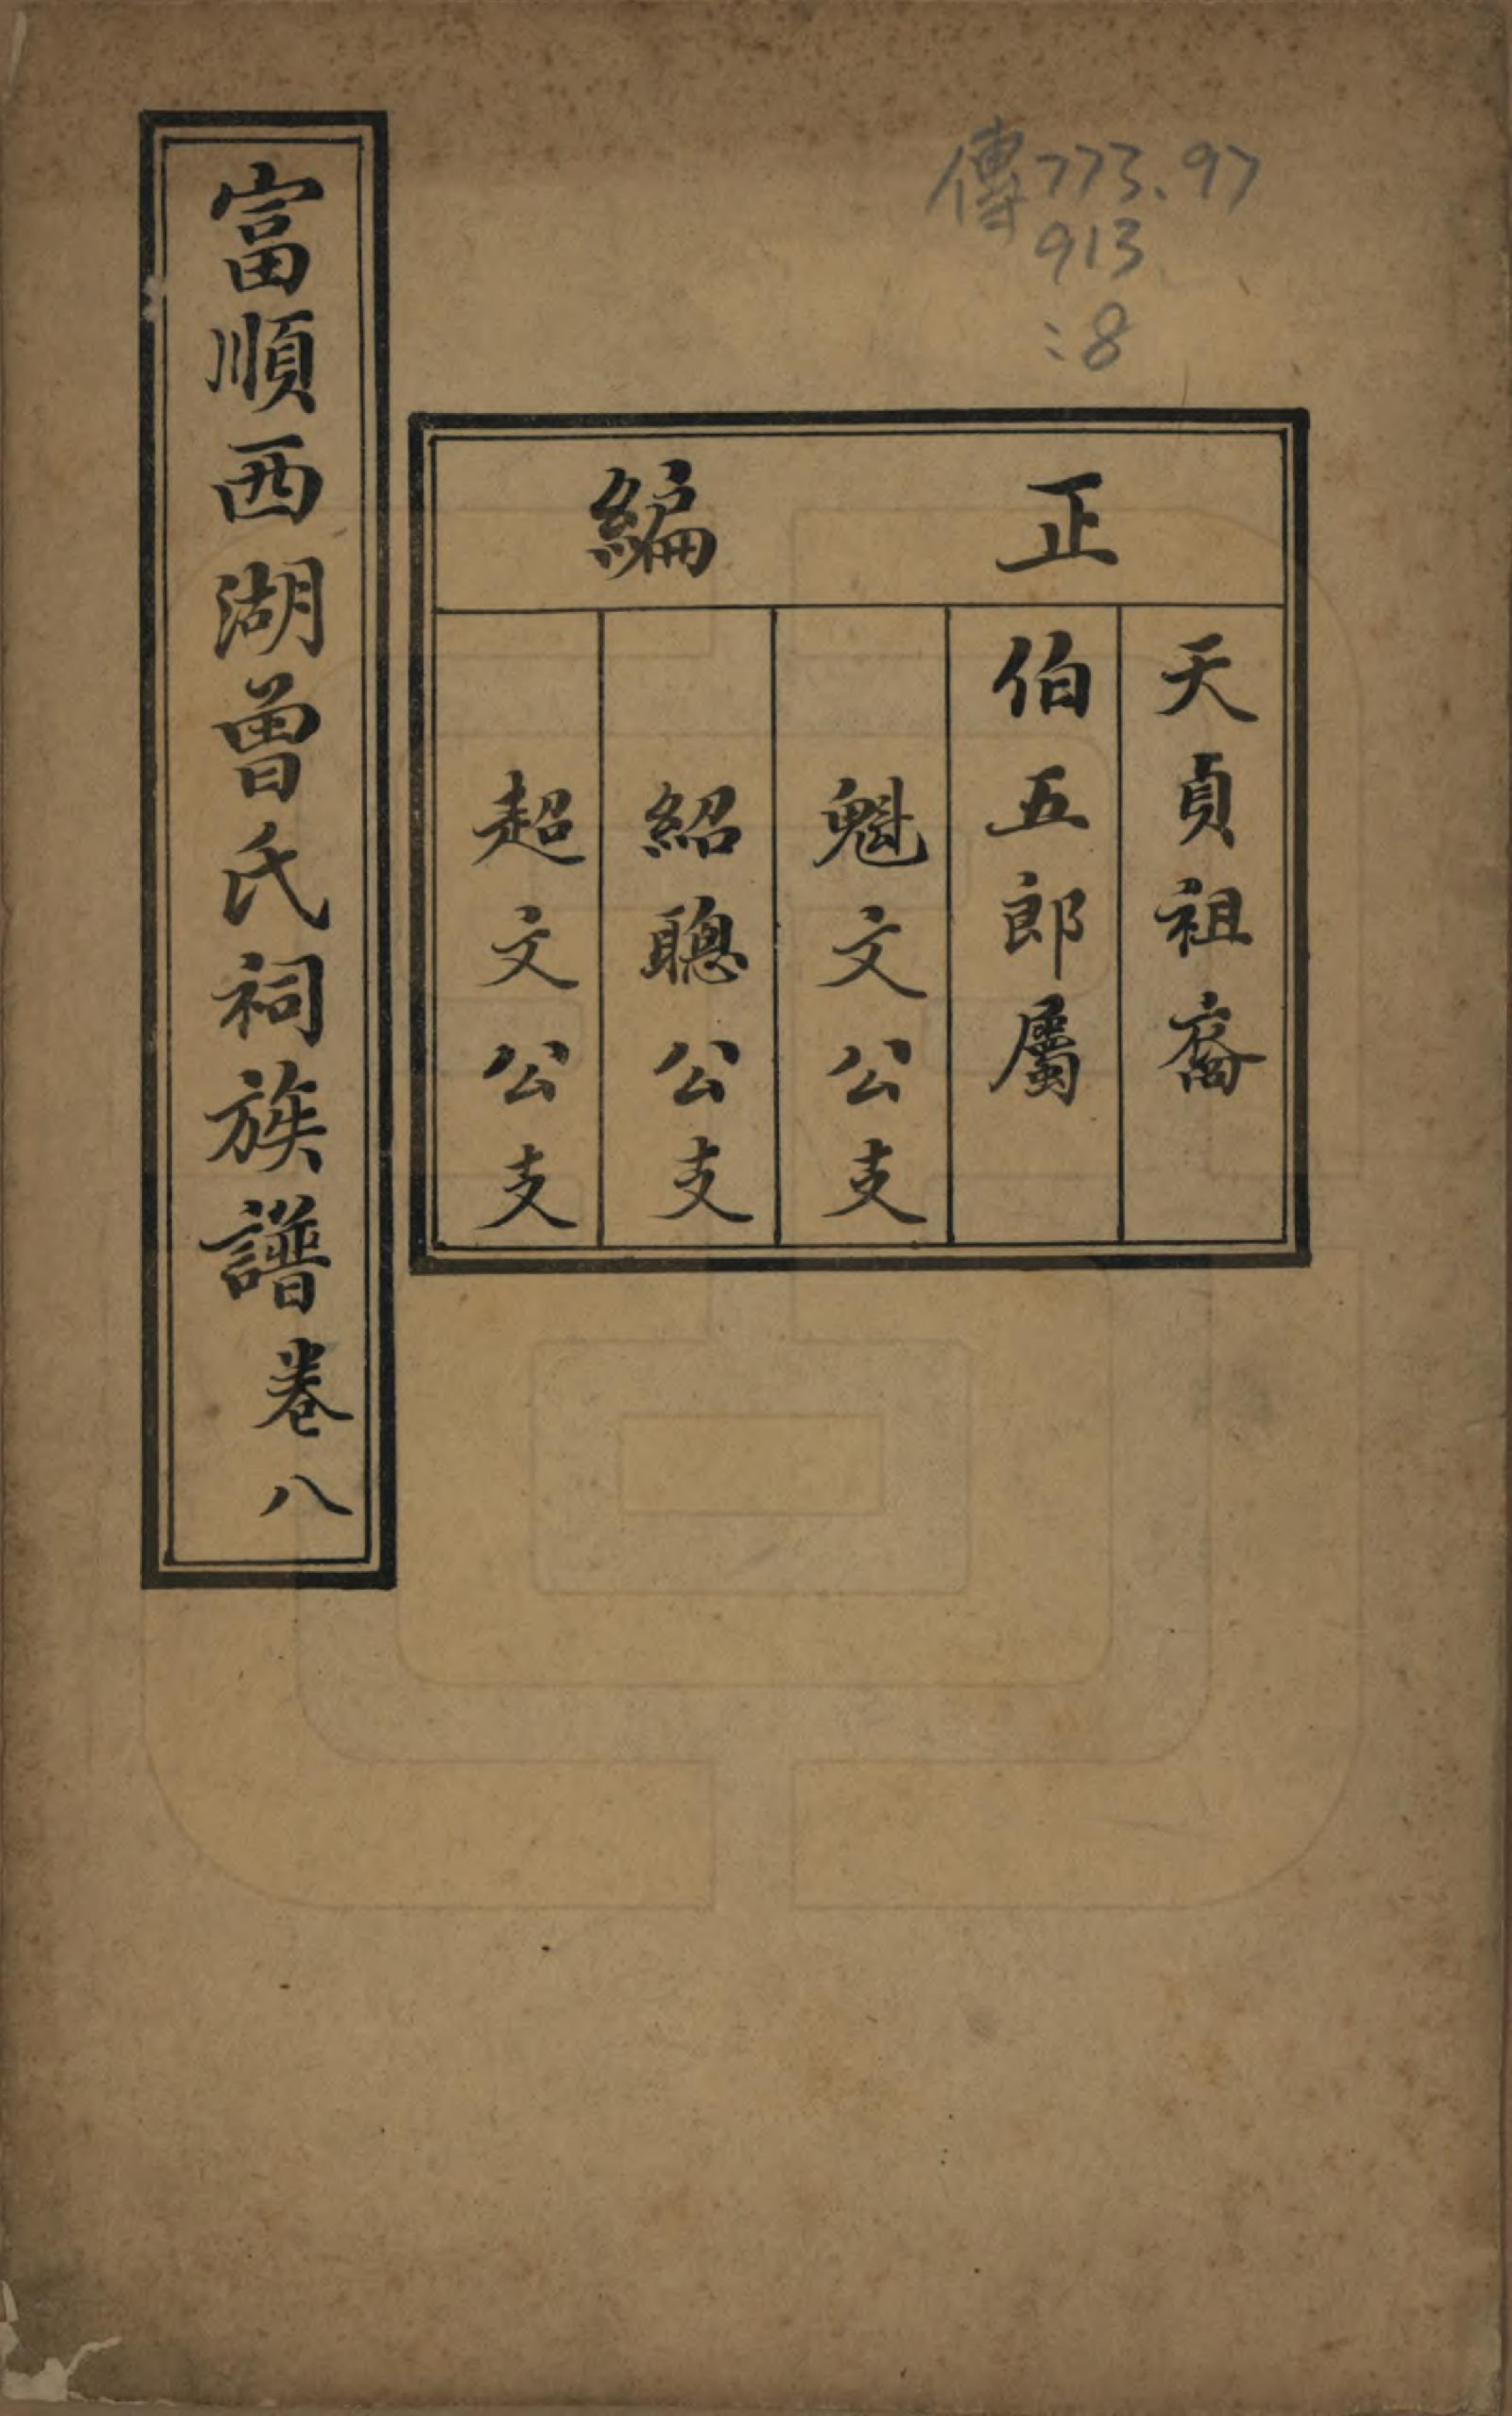 傳773.97
913
:8
正編
天貞祖裔
伯五郎屬
魁文公支
紹聰公支
超文公支
富順西湖曾氏祠族譜卷八